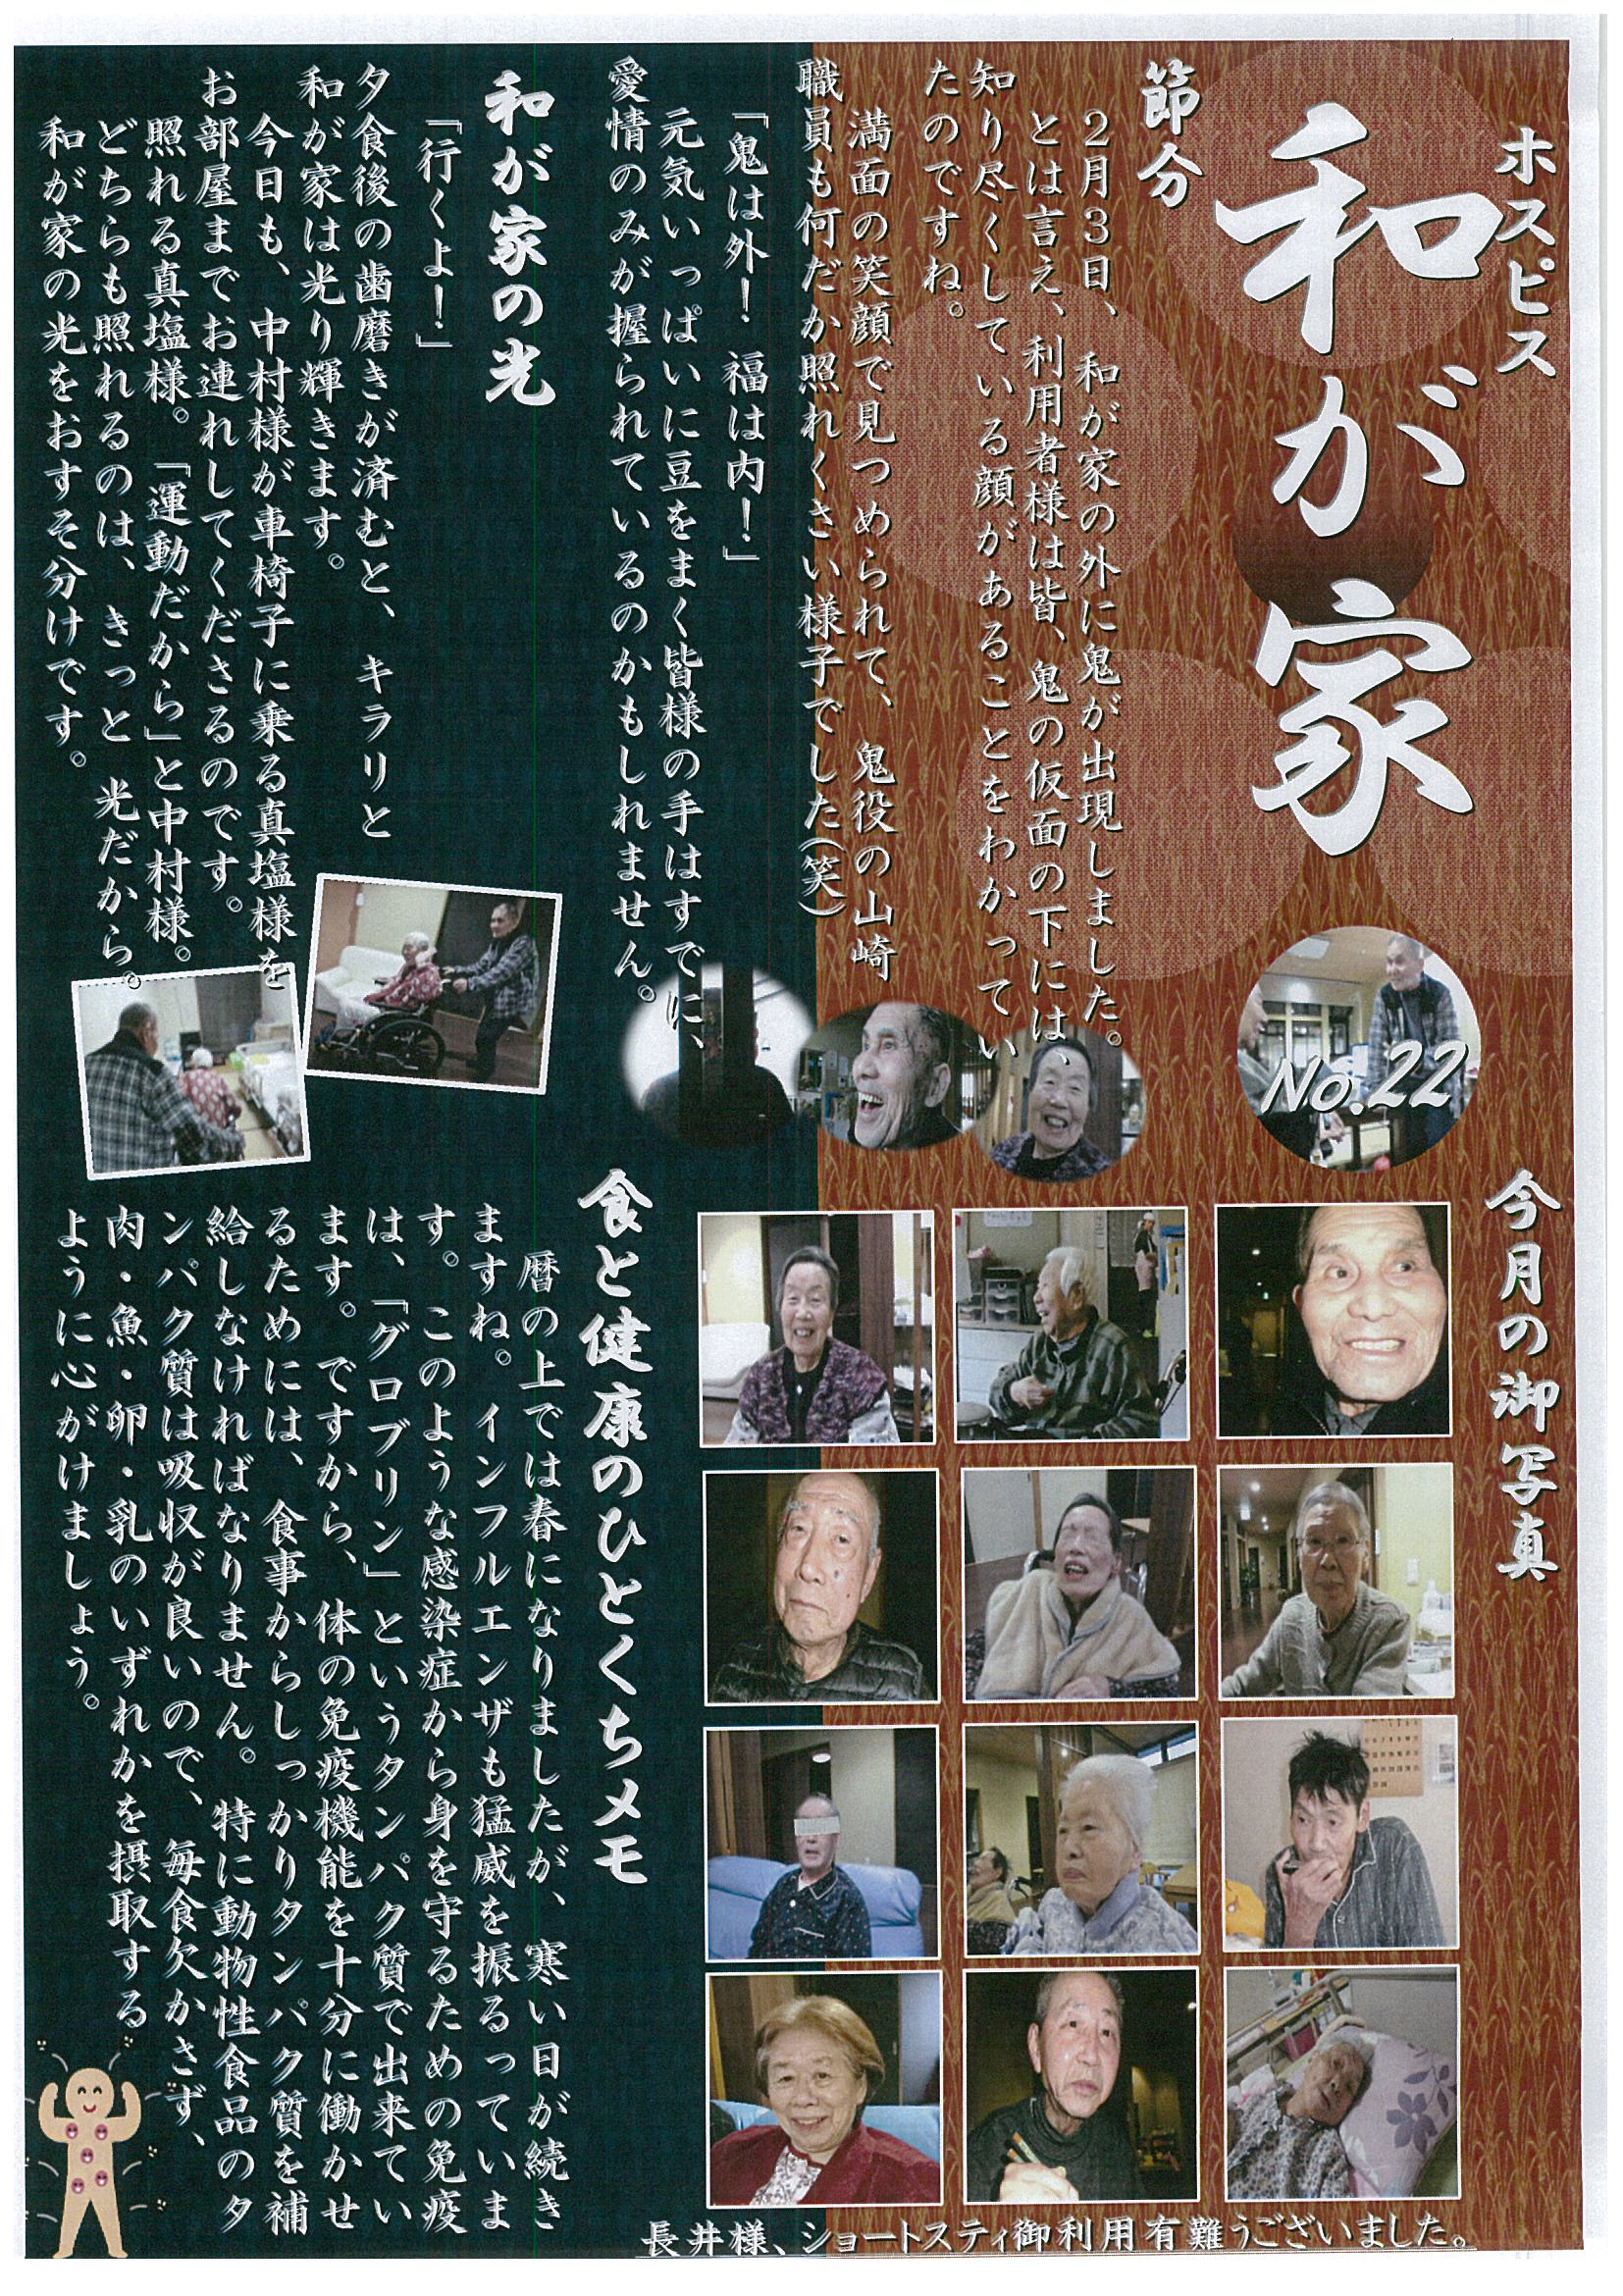 ホスピス
和が家
No.22
節分
2月3日、和が家の外に鬼が出現しました。
とは言え、利用者様は皆、鬼の仮面の下には、
知り尽くしている顔があることをわかってい
たのですね。
満面の笑顔で見つめられて、鬼役の山崎
職員も何だか照れくさい様子でした(笑)
「鬼は外！福は内！」
元気いっぱいに豆をまく皆様の手はすでに、
愛情のみが握られているのかもしれません。
和が家の光
「行くよ！」
夕食後の歯磨きが済むと、キラリと
和が家は光り輝きます。
今日も、中村様が車椅子に乗る真塩様を
お部屋までお連れしてくださるのです。
照れる真塩様。「運動だから」と中村様。
どちらも照れるのは、きっと 光だから。
和が家の光をおすそ分けです。
今月の御写真
長井様、ショートスティ御利用有難うございました。
食と健康のひとくちメモ
暦の上では春になりましたが、寒い日が続き
ますね。インフルエンザも猛威を振るっていま
す。このような感染症から身を守るための免疫
は、「グロブリン」というタンパク質で出来てい
ます。ですから、体の免疫機能を十分に働かせ
るためには、食事からしっかりタンパク質を補
給しなければなりません。特に動物性食品のタ
ンパク質は吸収が良いので、毎食欠かさず、
肉・魚・卵・乳のいずれかを摂取する
ように心がけましょう。